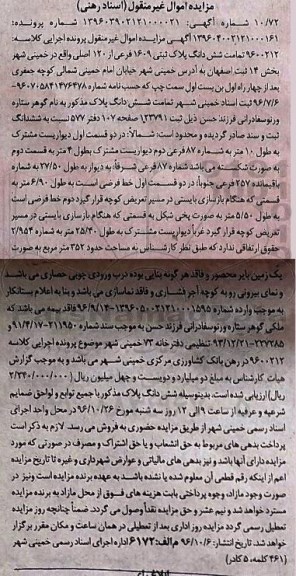 مزایده اموال غیرمنقول (اسناد رهنی)
۱۰/۷۲ شماره آگهی: ۱۳۹۶۰۳۹۰۲۱۲۱۰۰۰۰۲۱ شماره پرونده:
۱۳۹۶۰۴۰۰۲۱۲۱۰۰۰۱۶۱ آگهی مزایده اموال غیر منقول پرونده اجرایی کلاسه:
۹۶۰۰۲۱۲ تمامت شش دانگ پلاک ثبتی ۱۶۰۹ فرعی از ۱۲۰ اصلی واقع در خمینی شهر
بخش ۱۴ ثبت اصفهان به آدرس خمینی شهر خیابان امام خمینی شمالی کوچه جعفری
بعد از چهار راه اول بن بست اول سمت چپ که حسب نامه شماره ۹۶۰۷۰۵۸۴۱۴۷۶۴۷۸-
۹۶/۷/۶ ثبت اسناد خمینی شهر تمامت شش دانگ پلاک مذکور به نام گوهر ستاره
ورنوسفادرانی فرزند حسن ذیل ثبت ۱۲۳۷۹۱ صفحه ۱۰۷ دفتر ۵۷۷ نسبت به ششدانگ
ثبت و سند صادر گردیده و محدود است: شمالاً: در دو قسمت اول دیواریست مشترک
به طول ۱۰ متر به شماره ۸۷ فرعی دوم دیواریست مشترک بطول ۴ متر که قسمت دوم
به صورت شکسته می باشد شماره ۸۷ فرعی شرقاً: به دیوار به طول ۲۷/۵۰ به شماره
باقیمانده ۲۵۷ فرعی جنوباً: در دو قسمت اول خط فرضی است به طول ۶/۹۰ متر به
قسمتی که هنگام بازسازی بایستی در مسیر تعریض کوچه قرار گیرد دوم خط فرضی است
به طول ۵/۵۰ متر به صورت پخی شکل به قسمتی که هنگام بازسازی بایستی در مسیر
تعریض کوچه قرار گیرد غرباً دیواریست مشترک به طول ۲۵/۴۰ متر به شماره ۲/۹۵۴
حقوق ارتفاقی ندارد که طبق نظر کارشناس به مساحت حدود ۳۵۲ متر مربع به صورت
یک زمین بایر محصور و فاقد هر گونه بنایی بوده درب ورودی چوبی حصاری می باشد
و نمای بیرونی رو به کوچه آجر فشاری و فاقد نماسازی می باشد و بنا به اعلام بستانکار
به موجب وارده شماره ۱۳۹۶۰۵۰۰۲۱۲۱۰۰۰۱۵۹۵-۹۶/۹/۱۴ فاقد بیمه می باشد که
ملکی گوهر ستاره ورنوسفادرانی فرزند حسن به موجب سند شماره ۲۱۱۹۵۰-۹۱/۴/۱۷ و
۲۳۷۲۸۵-۹۳/۱۲/۲۱ تنظیمی دفترخانه ۷۳ خمینی شهر موضوع پرونده اجرایی کلاسه
۹۶۰۰۲۱۲ در رهن بانک کشاورزی مرکزی خمینی شهر می باشد و به موجب گزارش
هیات کارشناس به مبلغ دو میلیارد و دویست و چهل میلیون ریال (۲/۲۴۰/۰۰۰/۰۰۰
ریال) ارزیابی شده است. بدینوسیله شش دانگ پلاک مذکور با جمیع توابع و لواحق ضمایم
شرعیه و عرفیه از ساعت ۹ الی ۱۲ روز سه شنبه مورخ ۹۶/۱۰/۲۶ در محل واحد اجرای
اسناد رسمی خمینی شهر از طریق مزایده حضوری به فروش می رسد. لازم به ذکر است
پرداخت بدهی های مربوط به حق انشعاب و یا حق اشتراک و مصرف در صورتی که مورد
مزایده دارای آنها باشد و نیز بدهی های مالیاتی و عوارض شهرداری و غیره تا تاریخ مزایده
اعم از اینکه رقم قطعی آن معلوم شده یا نشده باشد به عهده برنده مزایده است و نیز در
صورت وجود مازاد، وجوه پرداختی بابت هزینه های فوق از محل مازاد به برنده مزایده
مسترد خواهد شد و نیم عشر و حق مزایده نقداً وصول می گردد. ضمناً چنانچه روز مزایده
تعطیل رسمی گردد مزایده روز اداری بعد از تعطیلی در همان ساعت و مکان مقرر برگزار
خواهد شد. تاریخ انتشار: ۹۶/۱۰/۶ م الف: ۶۱۷۲ اداره اجرای اسناد رسمی خمینی شهر
(۴۶۱ کلمه، ۵ کادر)